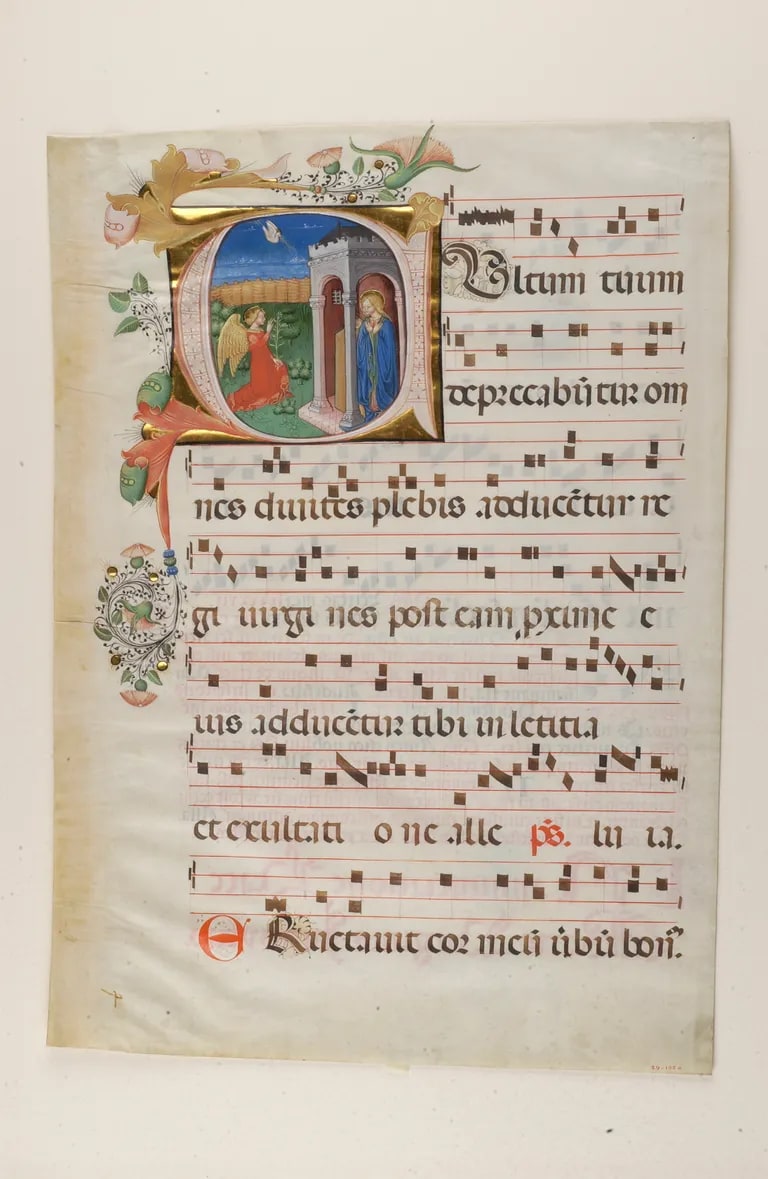 Vltum tuum
deprecabūtur om
nes diuites plebis adducētur re
gi uirgi nes post eam pxime e
ius adducētur tibi in letitia
et exultati o ne alle ps. lu ia.
ERuctauit cor meū ūbū bonū.